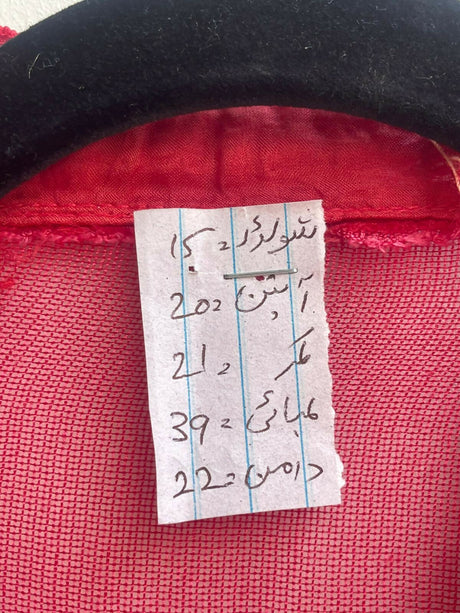 شولڈر = 15
آستن = 20
کمر = 21
لمبائی = 39
دامن = 22